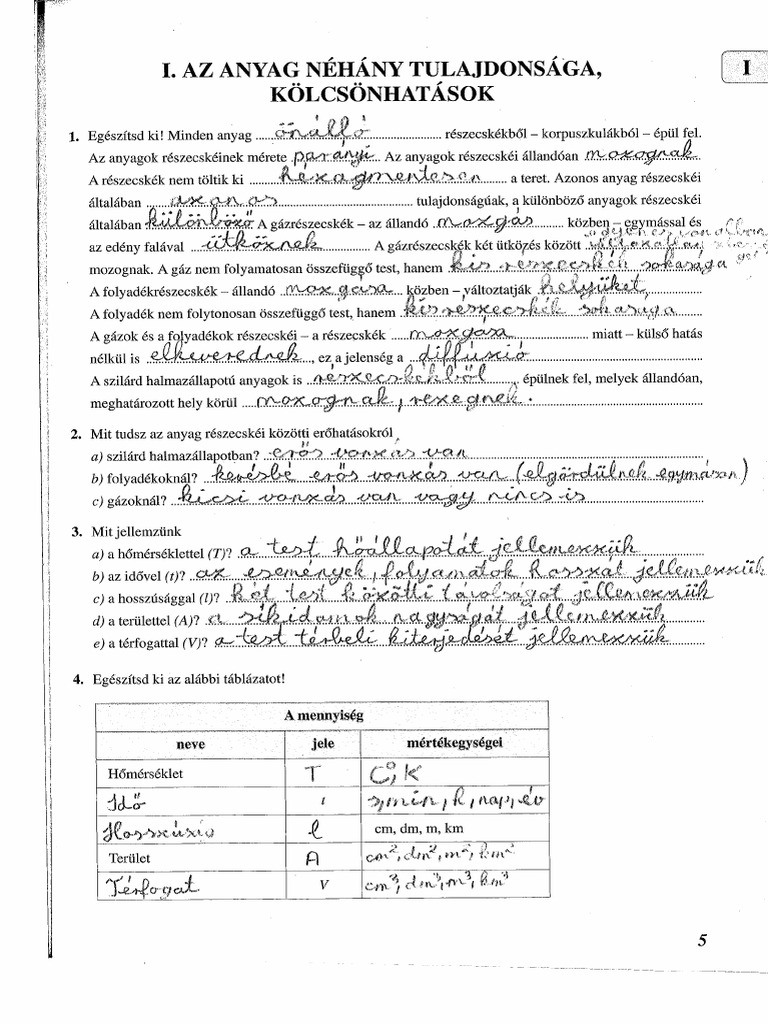 I. AZ ANYAG NÉHÁNY TULAJDONSÁGA,
KÖLCSÖNHATÁSOK
I
1. Egészítsd ki! Minden anyag önálló részecskékből – korpuszkulákból – épül fel.
Az anyagok részecskéinek mérete parányi. Az anyagok részecskéi állandóan mozognak
A részecskék nem töltik ki hézagmentesen a teret. Azonos anyag részecskéi
általában azonos tulajdonságúak, a különböző anyagok részecskéi
általában különböző A gázrészecskék – az állandó mozgás közben – egymással és
az edény falával ütköznek A gázrészecskék két ütközés között egyenes vonalban
mozognak. A gáz nem folyamatosan összefüggő test, hanem kis részecskék sokasága
A folyadékrészecskék – állandó mozgása közben – változtatják helyüket,
A folyadék nem folytonosan összefüggő test, hanem kis részecskék sokasága
A gázok és a folyadékok részecskéi – a részecskék mozgása miatt – külső hatás
nélkül is elkeverednek, ez a jelenség a diffúzió
A szilárd halmazállapotú anyagok is részecskékből épülnek fel, melyek állandóan,
meghatározott hely körül mozognak, rezegnek.
2. Mit tudsz az anyag részecskéi közötti erőhatásokról
a) szilárd halmazállapotban? erős vonzás van
b) folyadékoknál? kevésbé erős vonzás van (elgördülnek egymáson)
c) gázoknál? kicsi vonzás van vagy nincs is
3. Mit jellemzünk
a) a hőmérséklettel (T)? a test hőállapotát jellemezzük
b) az idővel (t)? az események, folyamatok hosszát jellemezzük
c) a hosszúsággal (l)? két test közötti távolságot jellemezzük
d) a területtel (A)? a síkidomok nagyságát jellemezzük
e) a térfogattal (V)? a test térbeli kiterjedését jellemezzük
4. Egészítsd ki az alábbi táblázatot!
A mennyiség
neve jele mértékegységei
Hőmérséklet T C°, K
Idő t s, min, h, nap, év
Hosszúság l cm, dm, m, km
Terület A cm², dm², m², km²
Térfogat V cm³, dm³, m³, km³
5